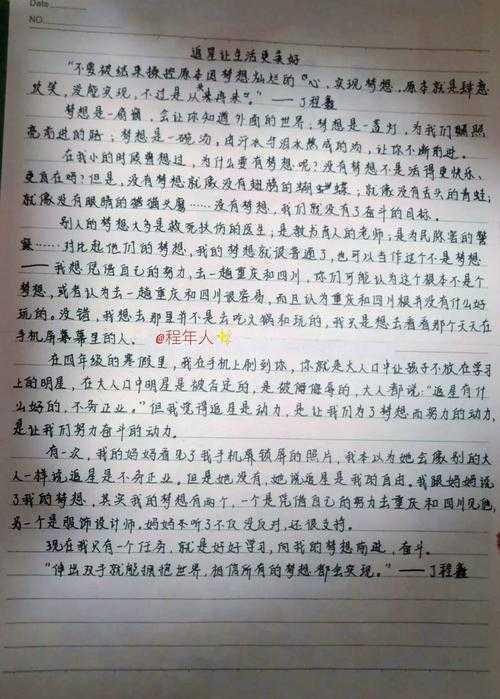 Date
NO.
追星让生活更美好
"不要被结果操控原本因梦想灿烂的心,实现梦想,原本就是肆意
欢笑,没能实现,不过是从"集再来"。"——丁程鑫
梦想是一扇窗,会让你知道外面的世界;梦想是一盏灯,为我们照照
亮前进的路;梦想是一碗汤,由汗水与泪水熬成的汤,让你不断前进。
在我小的时候曾想过,为什么要有梦想呢?没有梦想不是活得更快乐、
更自在吗?但是,没有梦想就像没有翅膀的蝴蝶;就像没有舌头的青蛙;
就像没有眼睛的猫头鹰……没有梦想,我们就没有了奋斗的目标。
别人的梦想大多是救死扶伤的医生;是教书育人的老师;是为民除害的警
察……对比起他们的梦想,我的梦想就很普通了,也可以当作这个不是梦想
——我想凭借自己的努力,去一趟重庆和四川,你们可能认为这个根本不是个
梦想,或者认为去一趟重庆和四川很容易,而且认为重庆和四川根并没有什么好
玩的。没错,我想去那里并不是去吃火锅和玩的,我只是想去看看那个天天在
手机屏幕幕里的人。 @程年人
在四年级的寒假里,我在手机上刷到你,你就是大人口中让孩子不放在学习
上的明星,在大人口中明星是被否定的,是被侮辱的,大人都说:"追星有什
么好的,不务正业。"但我觉得追星是动力,是让我们为了梦想而努力的动力,
是让我们努力奋斗的动力。
有一次,我的妈妈看见了我手机屏锁屏的照片,我本以为她会像别的大
人一样说追星是不务正业。但是她没有,她说追星是我的自由。我跟妈妈说
了我的梦想,其实我的梦想有两个,一个是凭借自己的努力去重庆和四川见他,
另一个是服饰设计师。妈妈听了不仅没反对,还很支持。
现在我只有一个任务,就是好好学习,向我的梦想前进,奋斗。
"伸出双手就能拥抱世界,相信所有的梦想都会实现。"——丁程鑫